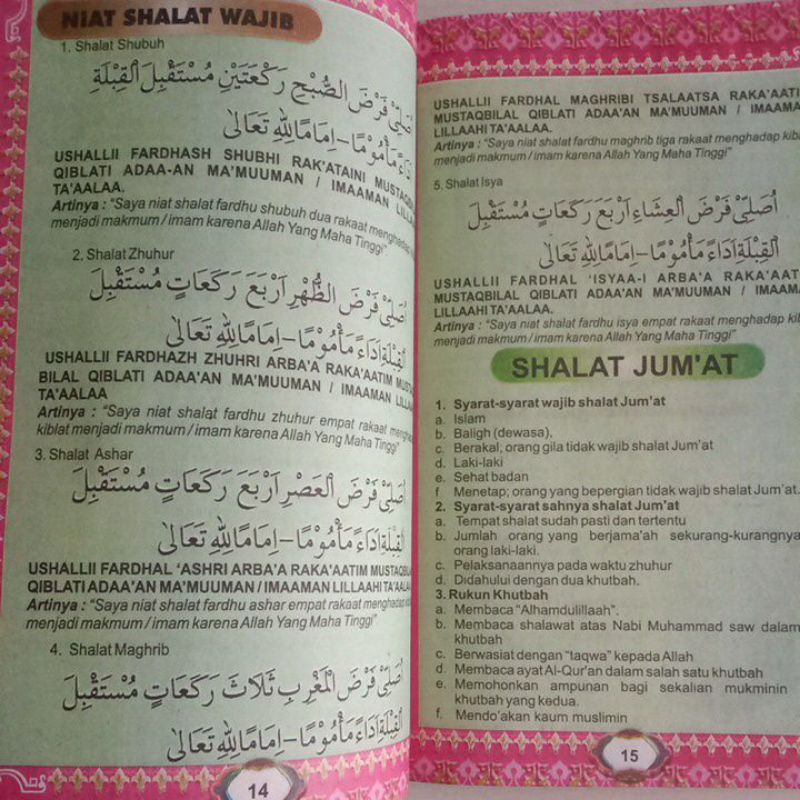 NIAT SHALAT WAJIB
1. Shalat Shubuh
اُصَلِّيْ فَرْضَ الصُّبْحِ رَكْعَتَيْنِ مُسْتَقْبِلَ الْقِبْلَةِ
اَدَاءً مَأْمُوْمًا – اِمَامًا لِلّٰهِ تَعَالٰى
USHALLII FARDHASH SHUBHI RAK'ATAINI MUSTAQBI
QIBLATI ADAA-AN MA'MUUMAN / IMAAMAN LILLA
TA'AALAA.
Artinya : "Saya niat shalat fardhu shubuh dua rakaat menghadap ki
menjadi makmum / imam karena Allah Yang Maha Tinggi"
2. Shalat Zhuhur
اُصَلِّيْ فَرْضَ الظُّهْرِ اَرْبَعَ رَكَعَاتٍ مُسْتَقْبِلَ
الْقِبْلَةِ اَدَاءً مَأْمُوْمًا – اِمَامًا لِلّٰهِ تَعَالٰى
USHALLII FARDHAZH ZHUHRI ARBA'A RAKA'AATIM MUST
BILAL QIBLATI ADAA'AN MA'MUUMAN / IMAAMAN LILLA
TA'AALAA
Artinya : "Saya niat shalat fardhu zhuhur empat rakaat menghada
kiblat menjadi makmum / imam karena Allah Yang Maha Tinggi"
3. Shalat Ashar
اُصَلِّيْ فَرْضَ الْعَصْرِ اَرْبَعَ رَكَعَاتٍ مُسْتَقْبِلَ
الْقِبْلَةِ اَدَاءً مَأْمُوْمًا – اِمَامًا لِلّٰهِ تَعَالٰى
USHALLII FARDHAL 'ASHRI ARBA'A RAKA'AATIM MUSTAQBIL
QIBLATI ADAA'AN MA'MUUMAN / IMAAMAN LILLAAHI TA'AALAA
Artinya : "Saya niat shalat fardhu ashar empat rakaat menghadap
menjadi makmum / imam karena Allah Yang Maha Tinggi"
4. Shalat Maghrib
اُصَلِّيْ فَرْضَ الْمَغْرِبِ ثَلَاثَ رَكَعَاتٍ مُسْتَقْبِلَ
الْقِبْلَةِ اَدَاءً مَأْمُوْمًا – اِمَامًا لِلّٰهِ تَعَالٰى
14
USHALLII FARDHAL MAGHRIBI TSALAATSA RAKA'AATI
MUSTAQBILAL QIBLATI ADAA'AN MA'MUUMAN / IMAAMA
LILLAAHI TA'AALAA.
Artinya : "Saya niat shalat fardhu maghrib tiga rakaat menghadap kibla
menjadi makmum / imam karena Allah Yang Maha Tinggi"
5. Shalat Isya
اُصَلِّيْ فَرْضَ الْعِشَاءِ اَرْبَعَ رَكَعَاتٍ مُسْتَقْبِلَ
الْقِبْلَةِ اَدَاءً مَأْمُوْمًا – اِمَامًا لِلّٰهِ تَعَالٰى
USHALLII FARDHAL 'ISYAA-I ARBA'A RAKA'AATI
MUSTAQBILAL QIBLATI ADAA'AN MA'MUUMAN / IMAAMA
LILLAAHI TA'AALAA.
Artinya : "Saya niat shalat fardhu isya empat rakaat menghadap kib
menjadi makmum / imam karena Allah Yang Maha Tinggi"
SHALAT JUM'AT
1. Syarat-syarat wajib shalat Jum'at
a. Islam
b. Baligh (dewasa),
c. Berakal; orang gila tidak wajib shalat Jum'at
d. Laki-laki
e. Sehat badan
f Menetap; orang yang bepergian tidak wajib shalat Jum'at.
2. Syarat-syarat sahnya shalat Jum'at
a. Tempat shalat sudah pasti dan tertentu
b. Jumlah orang yang berjama'ah sekurang-kurangnya
orang laki-laki.
c. Pelaksanaannya pada waktu zhuhur
d. Didahului dengan dua khutbah.
3. Rukun Khutbah
a. Membaca "Alhamdulillaah".
b. Membaca shalawat atas Nabi Muhammad saw dalam
khutbah
c. Berwasiat dengan "taqwa" kepada Allah
d. Membaca ayat Al-Qur'an dalam salah satu khutbah
e. Memohonkan ampunan bagi sekalian mukminin
khutbah yang kedua.
f. Mendo'akan kaum muslimin
15